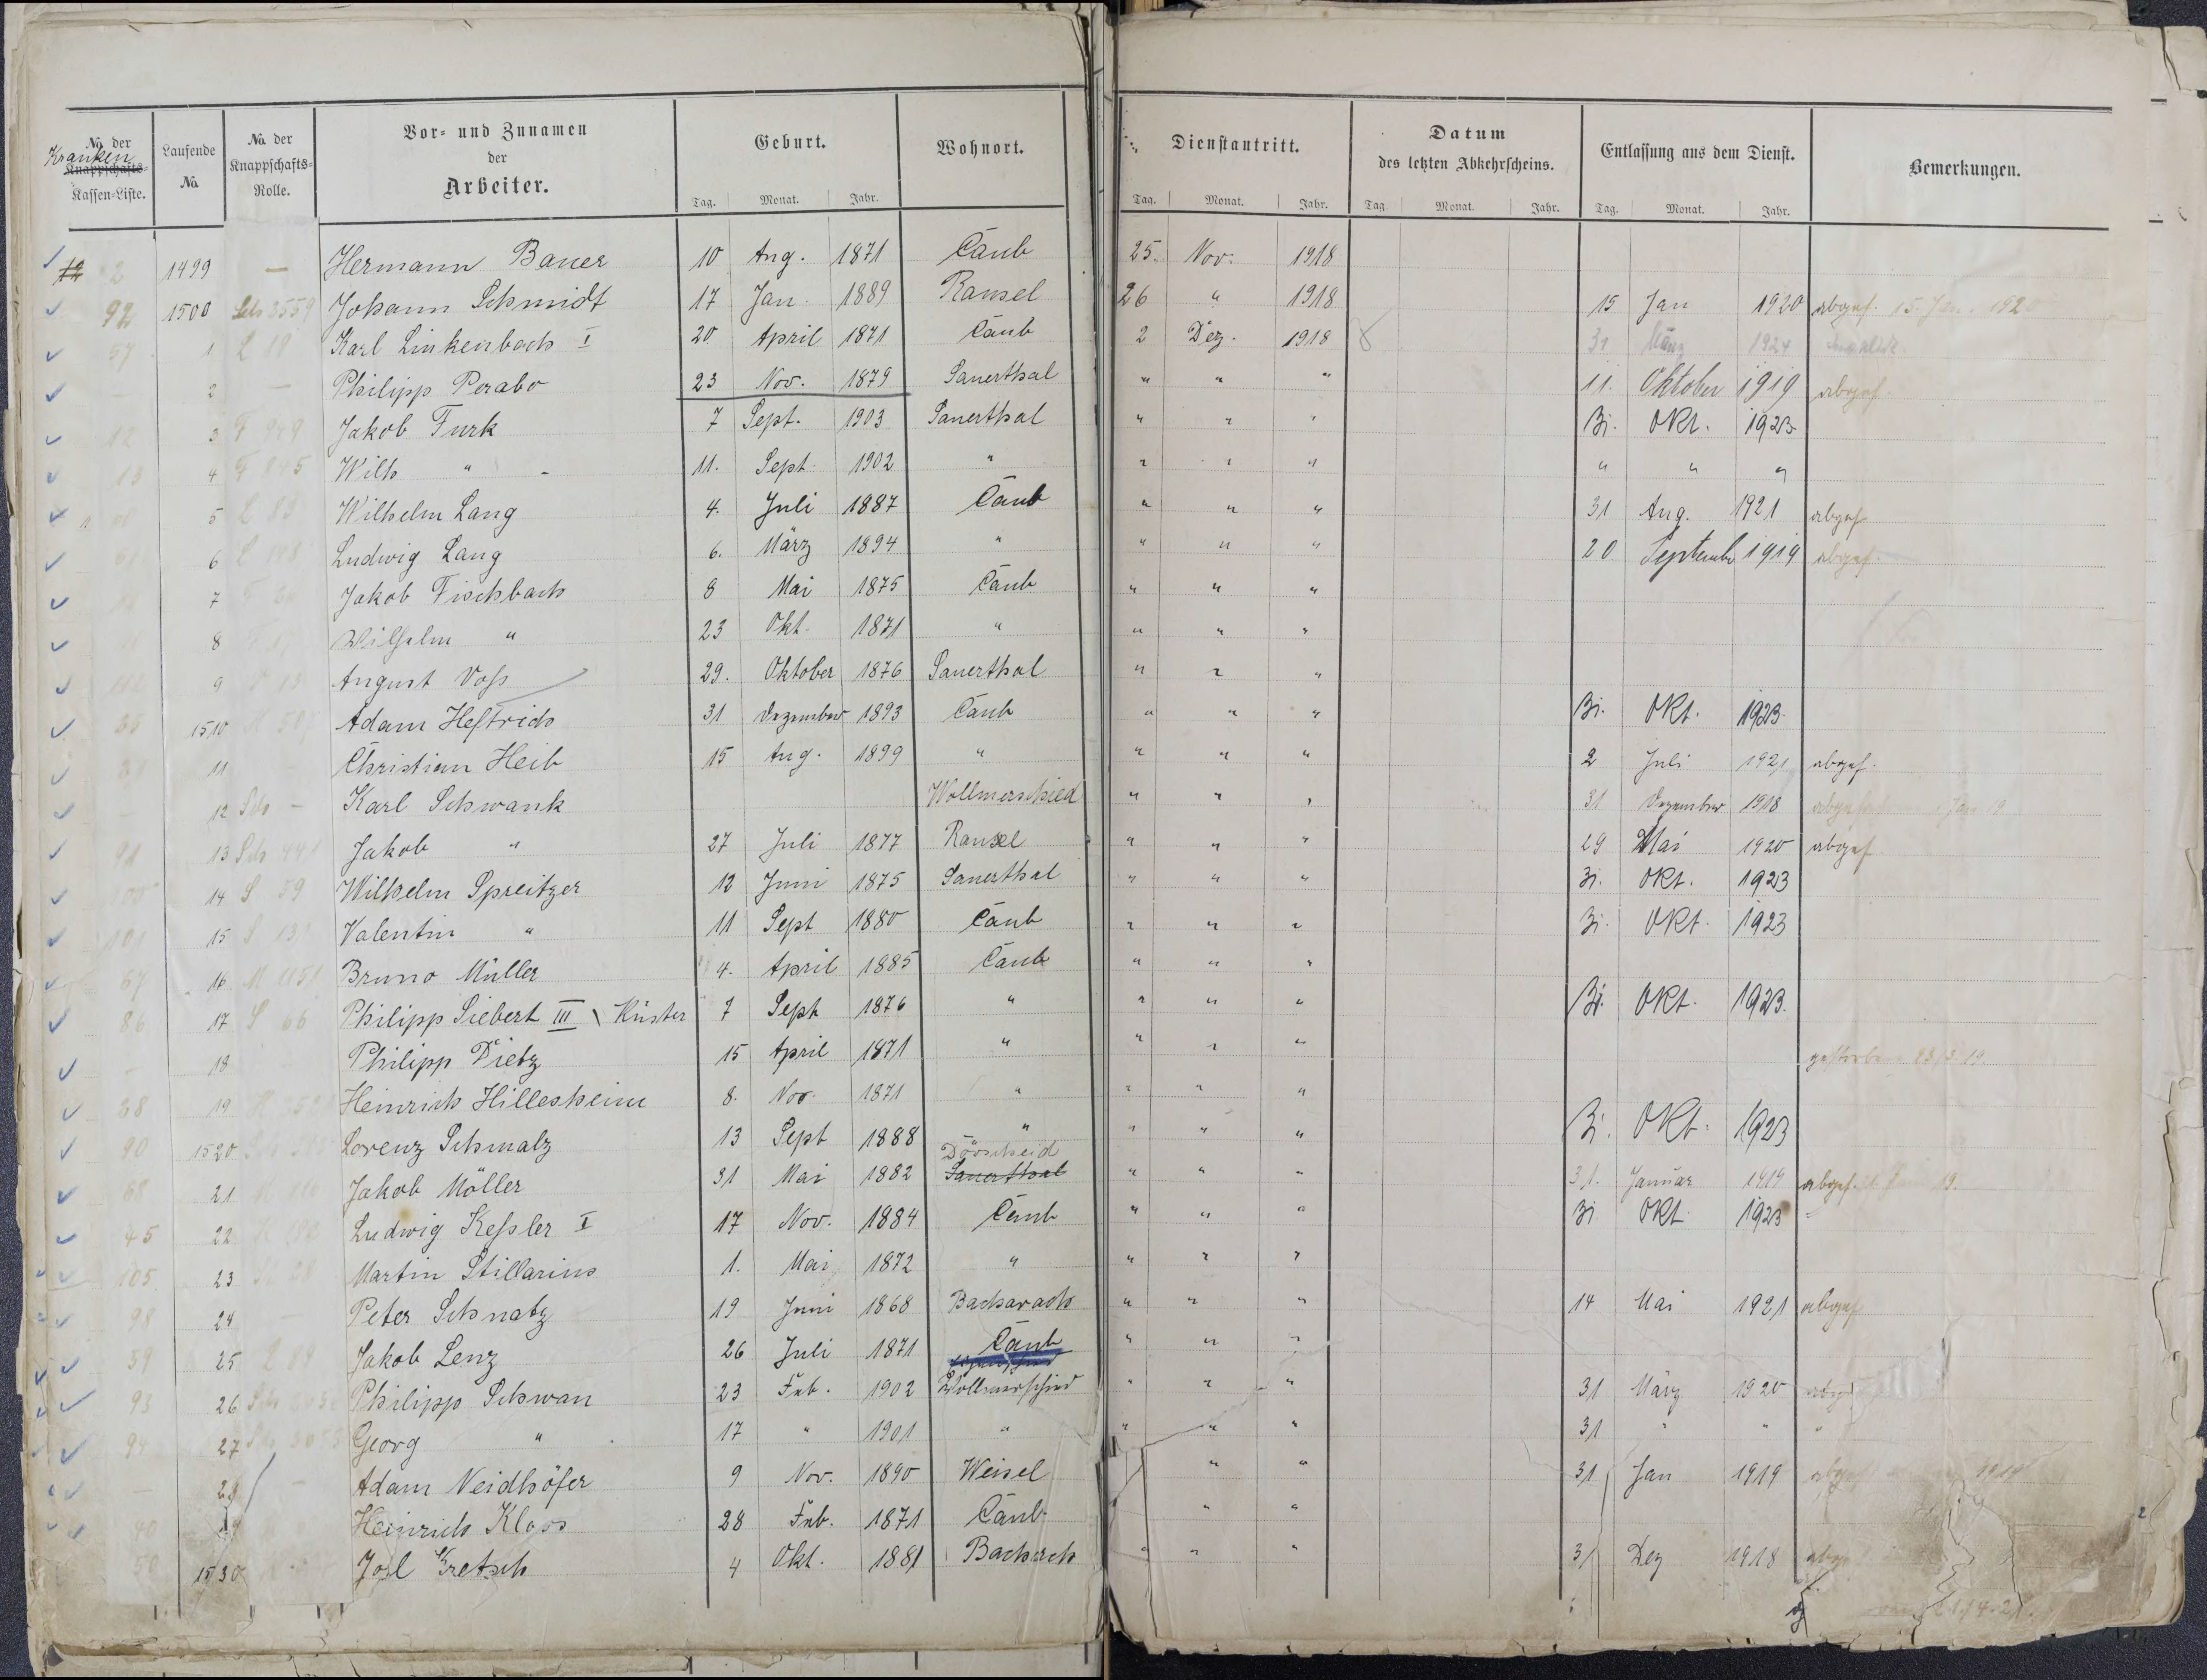 No. der Kranken Knappschafts- Kassen-Liste. Laufende No. No. der Knappschafts- Rolle. Vor- und Zunamen der Arbeiter. Geburt. Tag. Monat. Jahr. Wohnort. Dienstantritt. Tag. Monat. Jahr. Datum des letzten Abkehrscheins. Tag. Monat. Jahr. Entlassung aus dem Dienst. Tag. Monat. Jahr. Bemerkungen.
12 2 1499 — Hermann Bauer 10 Aug. 1871 Caub 25. Nov. 1918
92 1500 Sch 3559 Johann Schmidt 17 Jan. 1889 Ransel 26 " 1918 15 Jan 1920 abgek. 15. Jan. 1920
57 1 L 18 Karl Linkenbach I 20 April 1871 Caub 2 Dez. 1918 31 März 1924
— 2 — Philipp Perabo 23 Nov. 1879 Sauerthal " " " 11. Oktober 1919 abgek.
12 3 F 849 Jakob Furk 7 Sept. 1903 Sauerthal " " " 31. Okt. 1923
13 4 F 845 Wilh " 11. Sept 1902 " " " " " " "
5 L 83 Wilhelm Lang 4. Juli 1887 Caub " " " 31 Aug. 1921 abgek
61 6 L 148 Ludwig Lang 6. März 1894 " " " " 20 September 1919 abgek.
7 Jakob Fischbach 8 Mai 1875 Caub " " "
8 Wilhelm " 23 Okt. 1871 " " " "
9 August Voss 29. Oktober 1876 Sauerthal " " "
35 1510 Adam Heftrich 31 Dezember 1893 Caub " " " 31. Okt. 1923.
11 Christian Heib 15 Aug. 1899 " " " " 2 Juli 1921 abgek.
12 Sch — Karl Schwank Wollmerschied " " " 31 Dezember 1918 Jan 19
91 13 Sch 441 Jakob " 27 Juli 1877 Ransel " " " 29 Mai 1920 abgek
100 14 S 59 Wilhelm Spreitzer 12 Juni 1875 Sauerthal " " " 31. Okt. 1923
101 15 S 13 Valentin " 11 Sept 1880 Caub " " " 31. Okt. 1923
67 16 M 1151 Bruno Müller 4. April 1885 Caub " " "
86 17 S 66 Philipp Siebert III \ Küster 7 Sept 1876 " " " " 31. Okt. 1923.
— 18 Philipp Dietz 15 April 1871 " " " " gestorben 23/3 19.
38 19 Heinrich Hillesheim 8. Nov. 1871 " " " "
90 1520 Lorenz Schmalz 13 Sept 1888 " " " " 31. Okt. 1923
68 21 Jakob Möller 31 Mai 1882 Dörscheid Sauerthal " " " 31. Januar 1919 abgek. 31. Jan 19.
45 22 Ludwig Kessler I 17 Nov. 1884 Caub " " " 31 Okt 1923
105 23 Martin Stillarius 1. Mai 1872 " " " "
98 24 — Peter Schnatz 19 Juni 1868 Bacharach " " " 14 Mai 1921 abgek
59 25 Jakob Lenz 26 Juli 1871 Caub " " "
93 26 Philipp Schwan 23 Feb. 1902 Wollmerschied " " " 31 März 1920
94 27 Georg " 17 " 1901 " " " " 31 " " "
— 28 — Adam Neidhöfer 9 Nov. 1890 Weisel " " 31 Jan 1919 1919
40 Heinrich Kloos 28 Feb. 1871 Caub " "
50 1530 Kretsch 4 Okt. 1881 Bachrch " " " 31 Dez 1918
21/4.21.
2